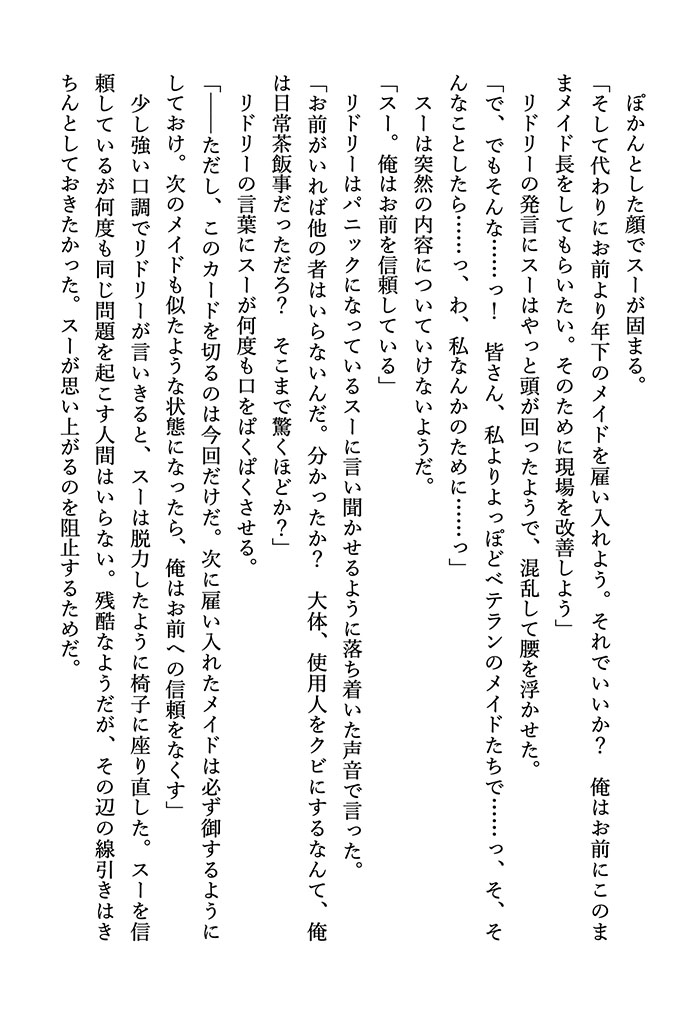 ぽかんとした顔でスーが固まる。
「そして代わりにお前より年下のメイドを雇い入れよう。それでいいか？　俺はお前にこのま
まメイド長をしてもらいたい。そのために現場を改善しよう」
　リドリーの発言にスーはやっと頭が回ったようで、混乱して腰を浮かせた。
「で、でもそんな……っ！　皆さん、私よりよっぽどベテランのメイドたちで……っ、そ、そ
んなことしたら……っ、わ、私なんかのために……っ」
　スーは突然の内容についていけないようだ。
「スー。俺はお前を信頼している」
　リドリーはパニックになっているスーに言い聞かせるように落ち着いた声音で言った。
「お前がいれば他の者はいらないんだ。分かったか？　大体、使用人をクビにするなんて、俺
は日常茶飯事だっただろ？　そこまで驚くほどか？」
　リドリーの言葉にスーが何度も口をぱくぱくさせる。
「――ただし、このカードを切るのは今回だけだ。次に雇い入れたメイドは必ず御するように
しておけ。次のメイドも似たような状態になったら、俺はお前への信頼をなくす」
　少し強い口調でリドリーが言いきると、スーは脱力したように椅子に座り直した。スーを信
頼しているが何度も同じ問題を起こす人間はいらない。残酷なようだが、その辺の線引きはき
ちんとしておきたかった。スーが思い上がるのを阻止するためだ。